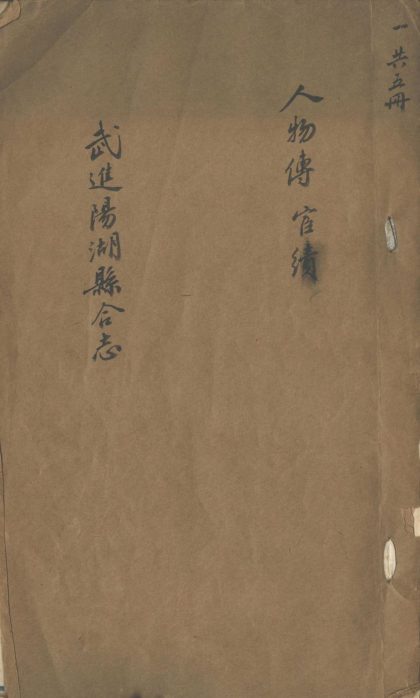 一 共五冊
人物傳 宦績
武進陽湖縣合志